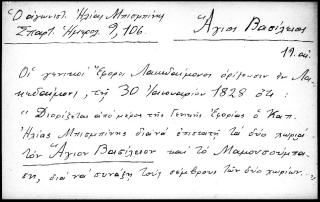 Ὁ ἀγωνιστ. Ἠλίας Μπισμπίνης
Σπαρτ. Ἡμερολ. 9, 106
Ἅγιος Βασίλειος
19. αἰ.
Οἱ γενικοὶ Ἔφοροι Λακεδαίμονος ὁρίζουσιν ἐν Λα-
κεδαίμονι, τῇ 30 Ἰανουαρίου 1828 ὅτι:
"Διορίζεται ἀπὸ μέρος τῆς Γενικῆς Ἐφορίας ὁ Καπ.
Ἠλίας Μπισμπίνης διὰ νὰ ἐπιστατῇ τὰ δύο χωριὰ
τὸν Ἅγιον Βασίλειον καὶ τὸ Μαμουσούμπα-
ση, διὰ νὰ συνάξῃ τοὺς σέμπρους τῶν δύο χωρίων.